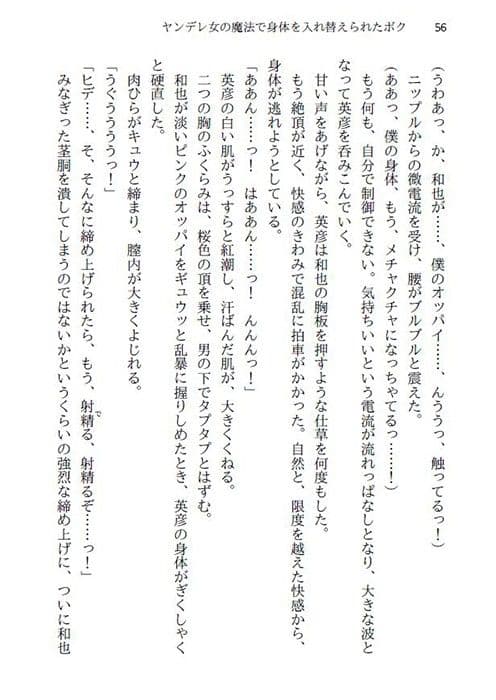 ヤンデレ女の魔法で身体を入れ替えられたボク 56
(うわあっ、か、和也が……、僕のオッパイ……、んううっ、触ってるっ!)
ニップルからの微電流を受け、腰がブルブルと震えた。
(ああっ、僕の身体、もう、メチャクチャになっちゃてるっ……!)
もう何も、自分で制御できない。気持ちいいという電流が流れっぱなしとなり、大きな波と
なって英彦を呑みこんでいく。
甘い声をあげながら、英彦は和也の胸板を押すような仕草を何度もした。
もう絶頂が近く、快感のきわみで混乱に拍車がかかった。自然と、限度を越えた快感から、
身体が逃れようとしている。
「ああん……っ! はああん……っ! んんんっ!」
英彦の白い肌がうっすらと紅潮し、汗ばんだ肌が、大きくくねる。
二つの胸のふくらみは、桜色の頂を乗せ、男の下でタプタプとはずむ。
和也が淡いピンクのオッパイをギュウッと乱暴に握りしめたとき、英彦の身体がぎくしゃく
と硬直した。
肉ひらがキュウと締まり、膣内が大きくよじれる。
「うぐううううっ!」
「ヒデ……、そ、そんなに締め上げられたら、もう、射精る、射精るぞ……っ!」
みなぎった茎胴を潰してしまうのではないかというくらいの強烈な締め上げに、ついに和也